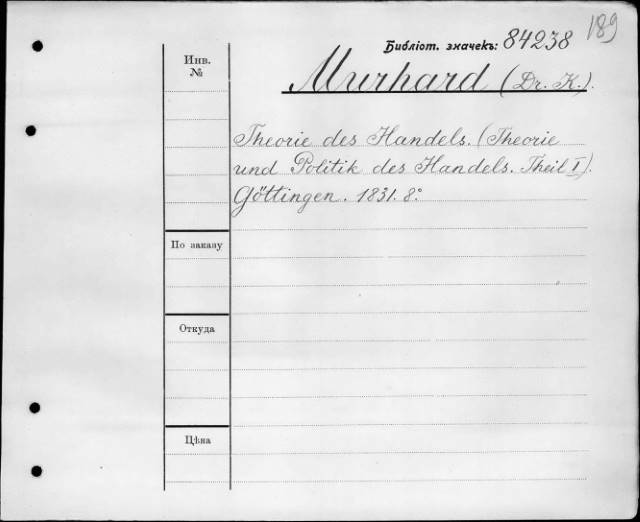 189
Библіот. значекъ: 84238
Инв.
№
Murhard (Dr. K.).
Theorie des Handels. (Theorie
und Politik des Handels. Theil I).
Göttingen. 1831. 8°
По заказу
Откуда
Цѣна